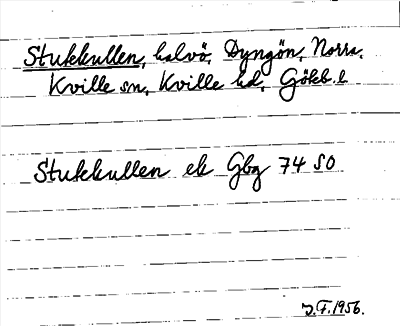 Stukkullen, halvö, Dyngön, Norra,
Kville sn, Kville hd, Göteb. l
Stukkullen ek Gbg 74 SO
J.F. 1956.